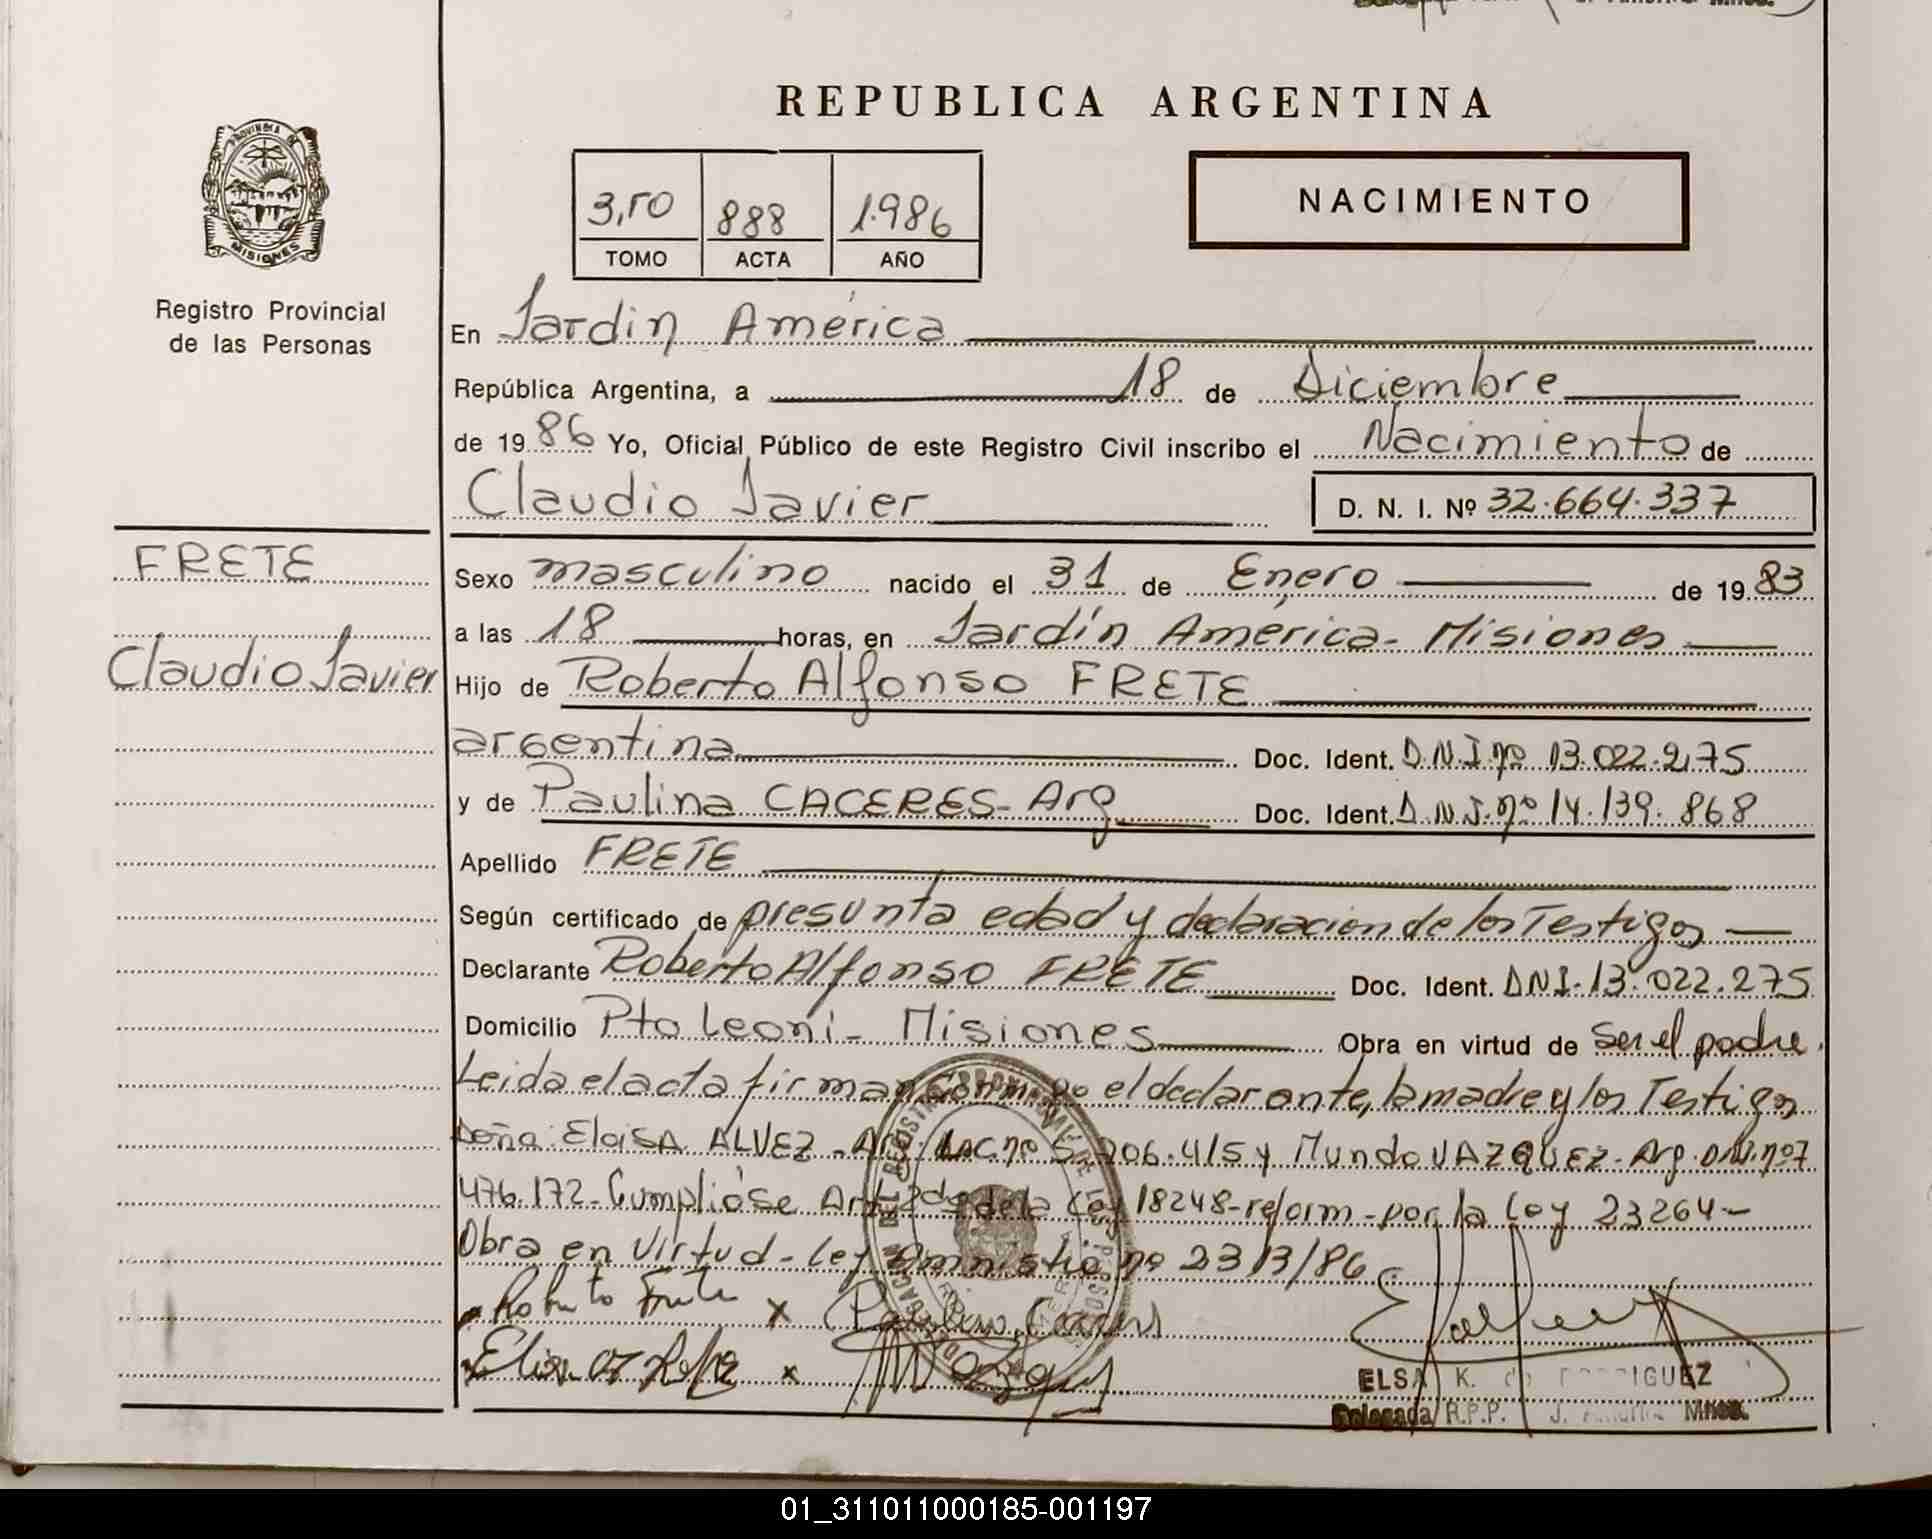 REPUBLICA ARGENTINA
PROVINCIA DE
MISIONES
Registro Provincial
de las Personas
NACIMIENTO
3,50 888 1.986
TOMO ACTA AÑO
En Jardin América
República Argentina, a 18 de Diciembre
de 1986 Yo, Oficial Público de este Registro Civil inscribo el Nacimiento de
Claudio Javier D. N. I. Nº 32.664.337
FRETE
Sexo masculino nacido el 31 de Enero de 1983
a las 18 horas, en Jardín América - Misiones
Claudio Javier
Hijo de Roberto Alfonso FRETE
argentina Doc. Ident. D.N.I. nº 13.022.275
y de Paulina CACERES - Arg Doc. Ident. D.N.I. nº 14.139.868
Apellido FRETE
Según certificado de presunta edad y declaracion de los Testigos
Declarante Roberto Alfonso FRETE Doc. Ident. DNI. 13.022.275
Domicilio Pto Leoni - Misiones Obra en virtud de ser el padre.
Leida el acta firman conmigo el declarante, la madre y los Testigos
Doña Eloisa ALVEZ - Arg. nº 5. 206.415 y Mundo VAZQUEZ - Arg. nº 7
476.172 - Cumplióse Art 2do de la Ley 18248 - reform - por la Ley 23264 -
Obra en Virtud - Ley Amnistia nº 2313/86
Roberto Frete x Paulina Caceres
x
ELSA K. de RODRIGUEZ
Delegada R.P.P. J. América Mnes.
01_311011000185-001197